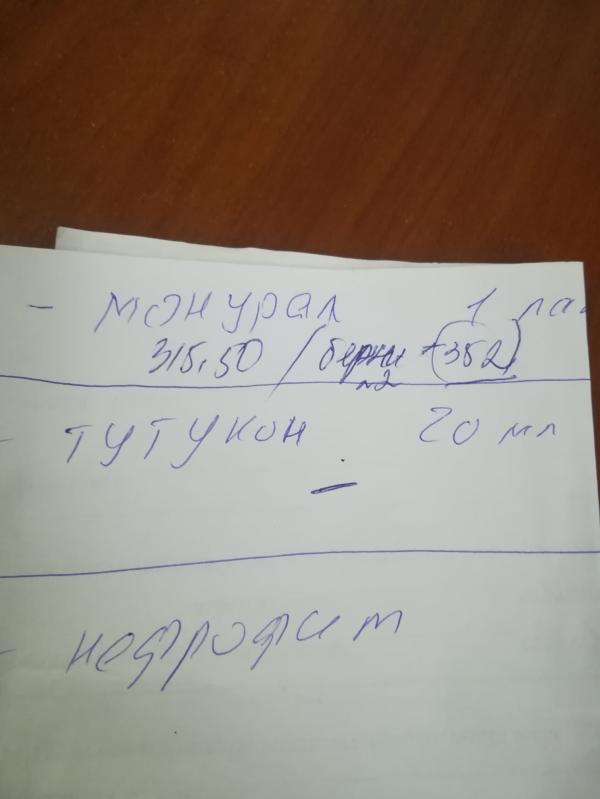 - монурал 1 па.
315,50 / берни - (352)
~2
- тутукон 20 мл
-
- нефрофит